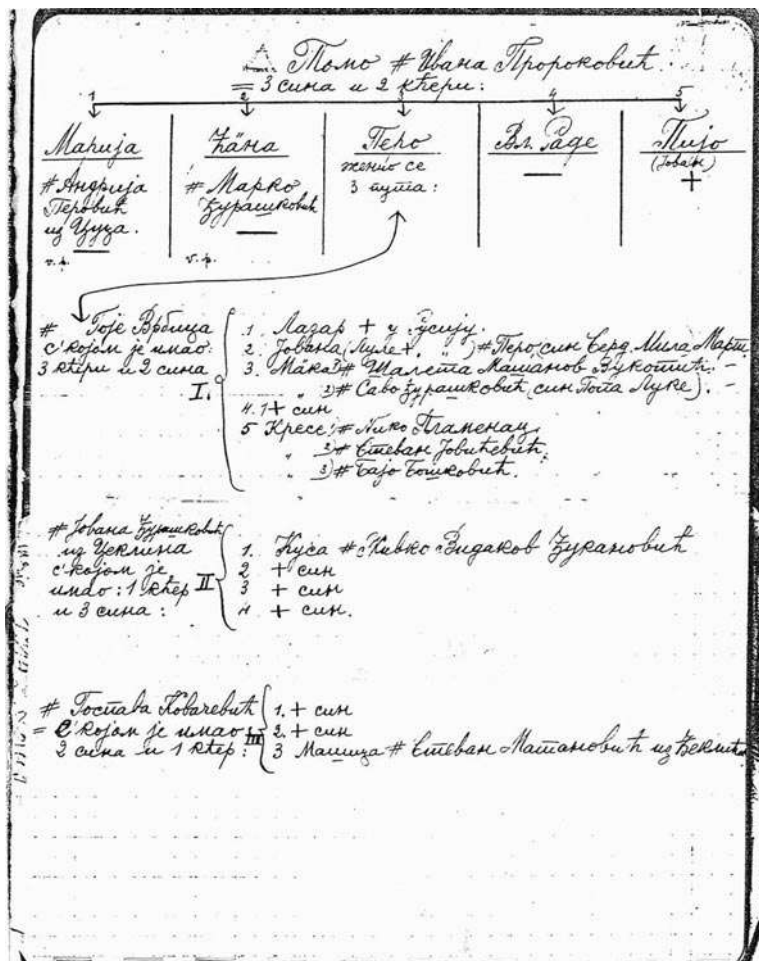 Томо # Ивана Пророковић.
= 3 сина и 2 кћери:
1 2 3 4 5
Марија
# Андрија
Перовић
из Цуца.
Ђäна
# Марко
Ђурашковић
Перо
женио се
3 пута:
Вл. Раде
Пијо
(Јован)
+
# Гоје Врбица
с'којом је имао:
3 кћери и 2 сина
I.
1. Лазар + у Русију.
2. Јована (Луле +, „ ) # Перо, син Серд. Мила Март.
3. Мäка 1) # Шалета Машанов Вукотић. -
„ 2) # Саво Ђурашковић (син Попа Луке). -
4. 1 + син
5 Кресе 1) # Нико Пламенац
„ 2) # Стеван Јовићевић.
„ 3) # Бајо Бошковић.
# Јована Ђурашковић
из Цеклина
с'којом је
имао: 1 кћер
и 3 сина:
II
1. Куса # Живко Видаков Ђукановић
2 + син
3 + син
4 + син.
# Госпава Ковачевић
= с'којом је имао
2 сина и 1 кћер:
III
1. + син
2. + син
3 Машица # Стеван Матановић из Ђеклића